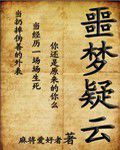 噩梦疑云
当扔掉伪善的外表
当经历一场场生死
你还是原来的你么
麻将爱好者 著